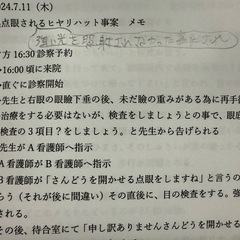 024.7.11（木）
点眼されるヒヤリハット事案　メモ
方 16:30 診察予約
16:00 頃に来院
直ぐに診察開始
先生と右眼の眼瞼下垂の後、未だ瞼の重みがある為に再手
治療をする必要はないが、検査をしましょうとの事で、眼底
検査の 3 項目？をしましょう。と先生から告げられる
先生が A 看護師へ指示
A 看護師が B 看護師へ指示
看護師が「さんどうを開かせる点眼をしますね」と言うの
らう（それが後に間違い）その直後に、目の検査をする。強
される。
その後、待合室にて「申し訳ありませんさんどうを開かせる